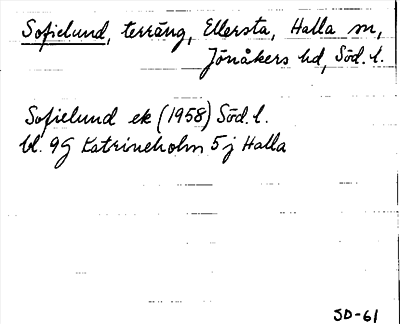 Sofielund, terräng, Ellersta, Halla sn,
Jönåkers hd, Söd. l.
Sofielund ek (1958) Söd. l.
bl. 9G Katrineholm 5 j Halla
SD-61